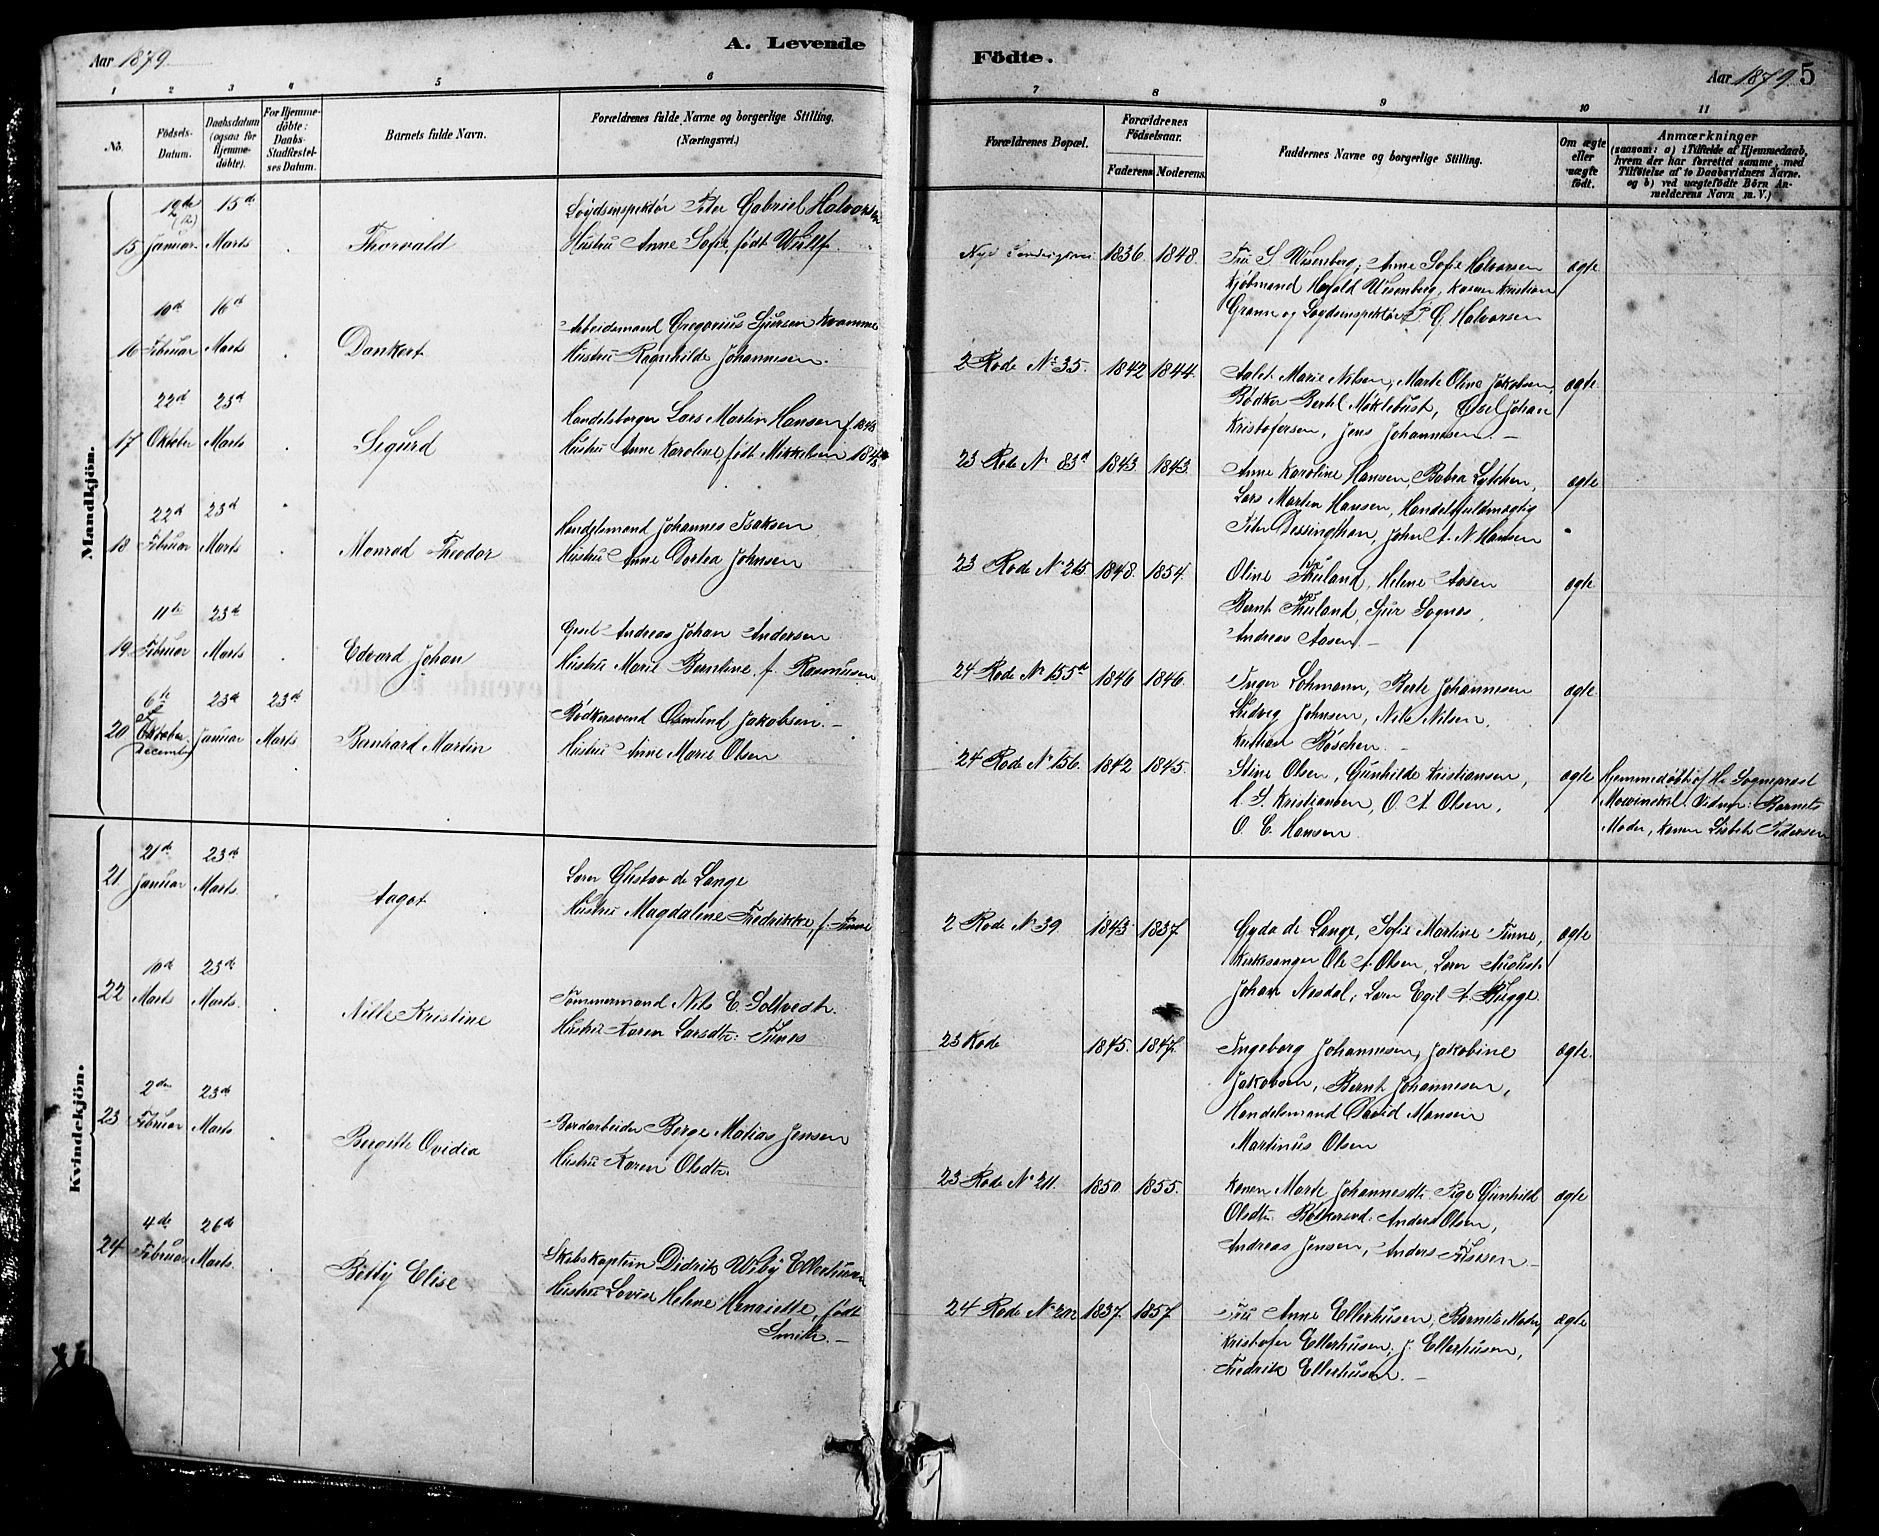 Aar 1879
A. Levende
1 2 3 4 5 6
No.
Födsels-
Datum.
Daabsdatum
(ogsaa for
Hjemme-
döbte).
For Hjemme-
döbte:
Daabs-
Stadfæstel-
ses Datum.
Barnets fulde Navn.
Forældrenes fulde Navne og borgerlige Stilling.
(Næringsvei.)
Mandkjön.
12te 15d
15 Januar Marts Thorvald
Peter Gabriel Halvorsen
Hustru Anne Sofie, født Wulff.
10d 16d
16 Februar Marts Dankert
Arbeidsmand Gregorius Sjursen Kvamme
Hustru Ragnhilde Johannesen.
22d 23d
17 Oktober Marts Sigurd
Handelsborger Lars Martin Hansen f 1843
Hustru Anne Karoline født Mikkelsen 1843
22d 23d
18 Februar Marts Monrad Theodor
Handelsmand Johannes Isaksen
Hustru Anne Dortea Johnsen
11te 23d
19 Februar Marts Edvard Johan
Gesel Andreas Johan Andersen
Hustru Marie Berntine f. Rasmussen
6te 23d 23d
20 Oktober Januar Marts Bernhard Martin
December
Bødkersvend Osmund Jakobsen.
Hustru Anne Marie Olsen
Kvindekjön.
21de 23d
21 Januar Marts Aagot
Lærer Gustav de Lange
Hustru Magdalene Fredrikke, f. Finne
10d 23d
22 Marts Marts. Nille Kristine
Tømmermand Nils E. Soltvedt.
Hustru Karen Larsdtr.
2den 23d
23 Februar Marts Bergitte Ovidia
Børge Matias Jensen
Hustru Karen Olsdtr.
4de 26d
24 Februar Marts. Betty Elise
Skibskaptein Didrik Wiby Ellerhusen
Hustru Lovise Helene Henriette, født
Smith.
Födte.
Aar 1879. 5
7 8 9 10 11
Forældrenes Bopæl.
Forældrenes
Födselsaar.
Faderens Moderens.
Faddernes Navne og borgerlige Stilling.
Om ægte
eller
uægte
födt.
Anmærkninger
(saasom: a) i Tilfælde af Hjemmedaab,
hvem der har forrettet samme, med
Tilföielse af to Daabsvidners Navne.
og b) ved uægtefödte Börn An-
melderens Navn m. V.)
1836 1848. Fru S Wesenberg, Anne Sofie Halvorsen ægte
Kjøbmand Harald Wesenberg, Kristian
og P. G. Halvorsen
2 Rode No 35. 1842 1844. Aalet Marie Nilsen, Marte Oline Jakobsen, ægte.
Bødker Bertel Myklebust, Gesel Johan
Kristofersen, Jens Johannesen.
23 Rode No 83d 1843. 1843. Anne Karoline Hansen, ægte
Lars Martin Hansen, Handelsfuldmægtig
Peter John A. N. Hansen
23 Rode No 215 1848. 1854. Oline Helene Aasen ægte
Bernt Sjur Sognes,
Andreas Aasen
24 Rode No 155a 1846 1846. Inger Lohmann, Berte Johannesen ægte
Ludvig Johnsen, Nils Nilsen,
Kristian Bøschen.
24 Rode No 156. 1842 1845. Stine Olsen, Gunhilde Kristiansen, ægte Hjemmedøbt af Hr Sogneprest
Kristiansen, O. A. Olsen, Mowinckel. Vidner: Barnets
O. E. Hansen. Moder, Konen Lisbet Pedersen
2 Rode No 39. 1843. 1837. Gyda de Lange, Sofie Martine Finne, ægte
Kirkesanger Ole A. Olsen, Lærer August
Johan Nesdal, Lærer Egil A. Bugge.
23 Rode 1845. 1847. Ingeborg Johannesen, Jakobine ægte.
Jakobsen, Bernt Johannesen,
Handelsmand David Monsen
Martinus Olsen
23 Rode No 211. 1850. 1855. Konen Marte Johannesdtr. Pige Gunhild ægte
Olsdtr. Bødkersvd. Anders Olsen,
Andreas Jensen, Anders
24 Rode No 202 1837. 1857. Fru Anne Ellerhusen, Barnets Moder, ægte
Kristofer Ellerhusen, J. Ellerhusen,
Fredrik Ellerhusen.